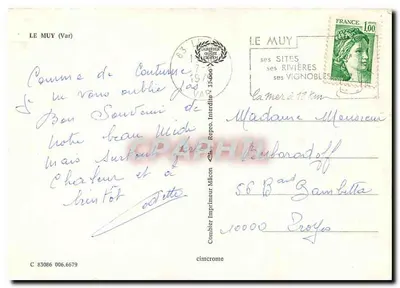 LE MUY (Var)
83 L
LE MUY
ses SITES
ses RIVIÈRES
ses VIGNOBLES
FRANCE
1,00
La mer à 15 km
Comme de Coutume
je ne vous oublie pas
Bon Souvenir de
notre beau Midi
mais surtout
Chaleur et à
bientôt
Odette
Madame Monsieur
56 Bard Gambetta
10000 Troyes
Combier Imprimeur Mâcon
Repro. Interdite
C 83086 006.6679
cimcrome
CPAPHIL